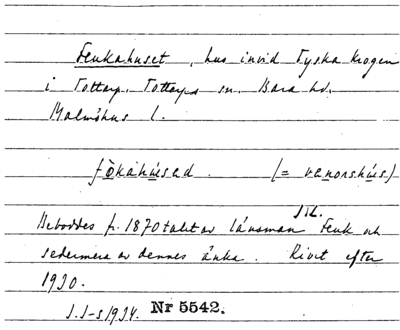 Feukahuset, hus invid Tyska krogen
i Tottarp, Tottarps sn. Bara hd.
Malmöhus l.
fökahúsed. (= venorshús)
Beboddes fr. 1870talet av länsman Feuk och
sedermera av dennes änka. Rivet efter
1920.
J.I-s 1934. Nr 5542.